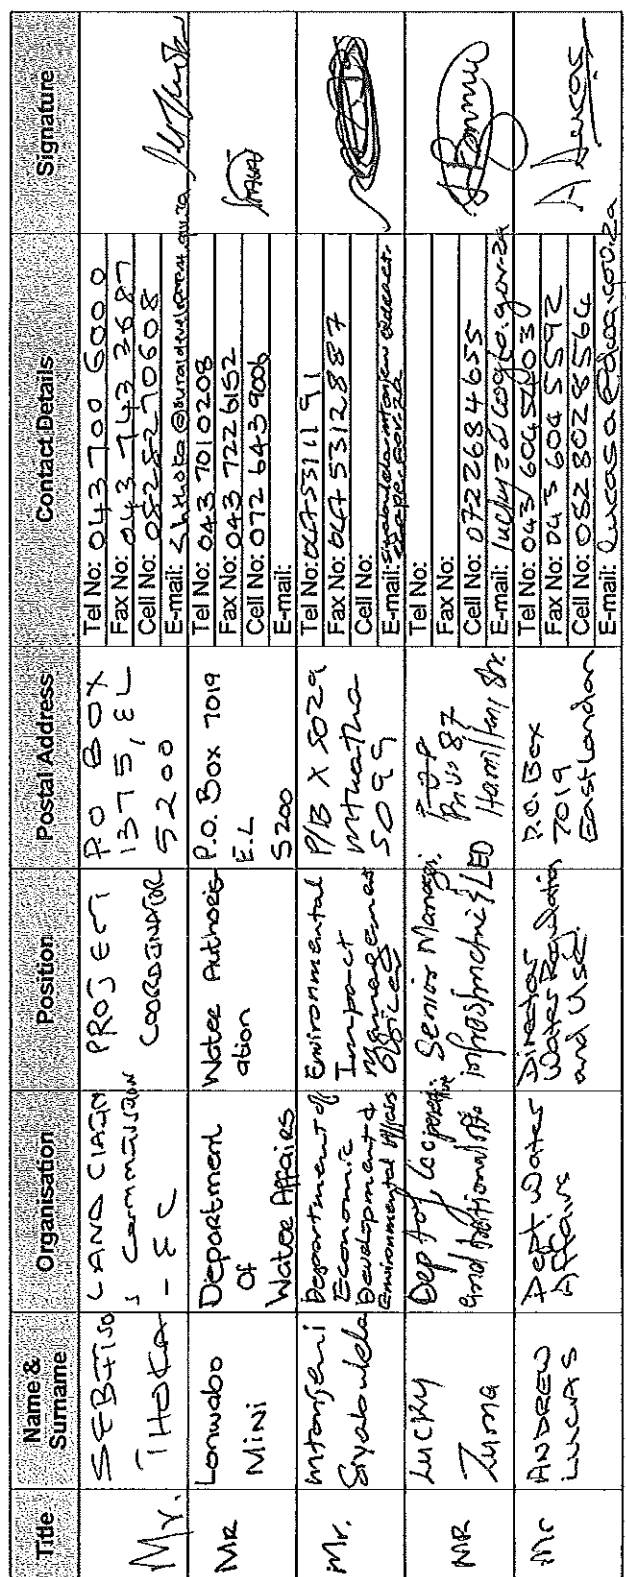 Title Name & Surname Organisation Position Postal Address Contact Details Signature
Mr. SEBTISO THOKA LAND CLAIM S COMMISSION - EC PROJECT COORDINATOR P.O BOX 1375, EL 5200
Tel No: 043 700 6000
Fax No: 043 743 3687
Cell No: 0828270608
E-mail:
MR Lonwabo MINI Department Of Water Affairs Water Authoris ation P.O. Box 7019 E.L 5200
Tel No: 043 7010208
Fax No: 043 7226152
Cell No: 072 643 9006
E-mail:
Mr. Mtonjeni Siyabulela Department of Economic Development & Environmental Affairs Environmental Impact Management P/B X 5029 Mthatha 5099
Tel No: 0475311191
Fax No: 047 5312887
Cell No:
E-mail:
MR LUCKY Zuma Dept of Cooperative and traditional affs Senior Manager infrastructure & LED Hamilton, Str.
Tel No:
Fax No:
Cell No: 0722684655
E-mail:
Mr ANDREW LUCAS Dept. Water Affairs Director Water Regulation and Use. P.O. Box 7019 East London
Tel No: 043/
Fax No: 043 604 5592
Cell No: 082 802 8564
E-mail: lucasa@dwa.gov.za
A Lucas